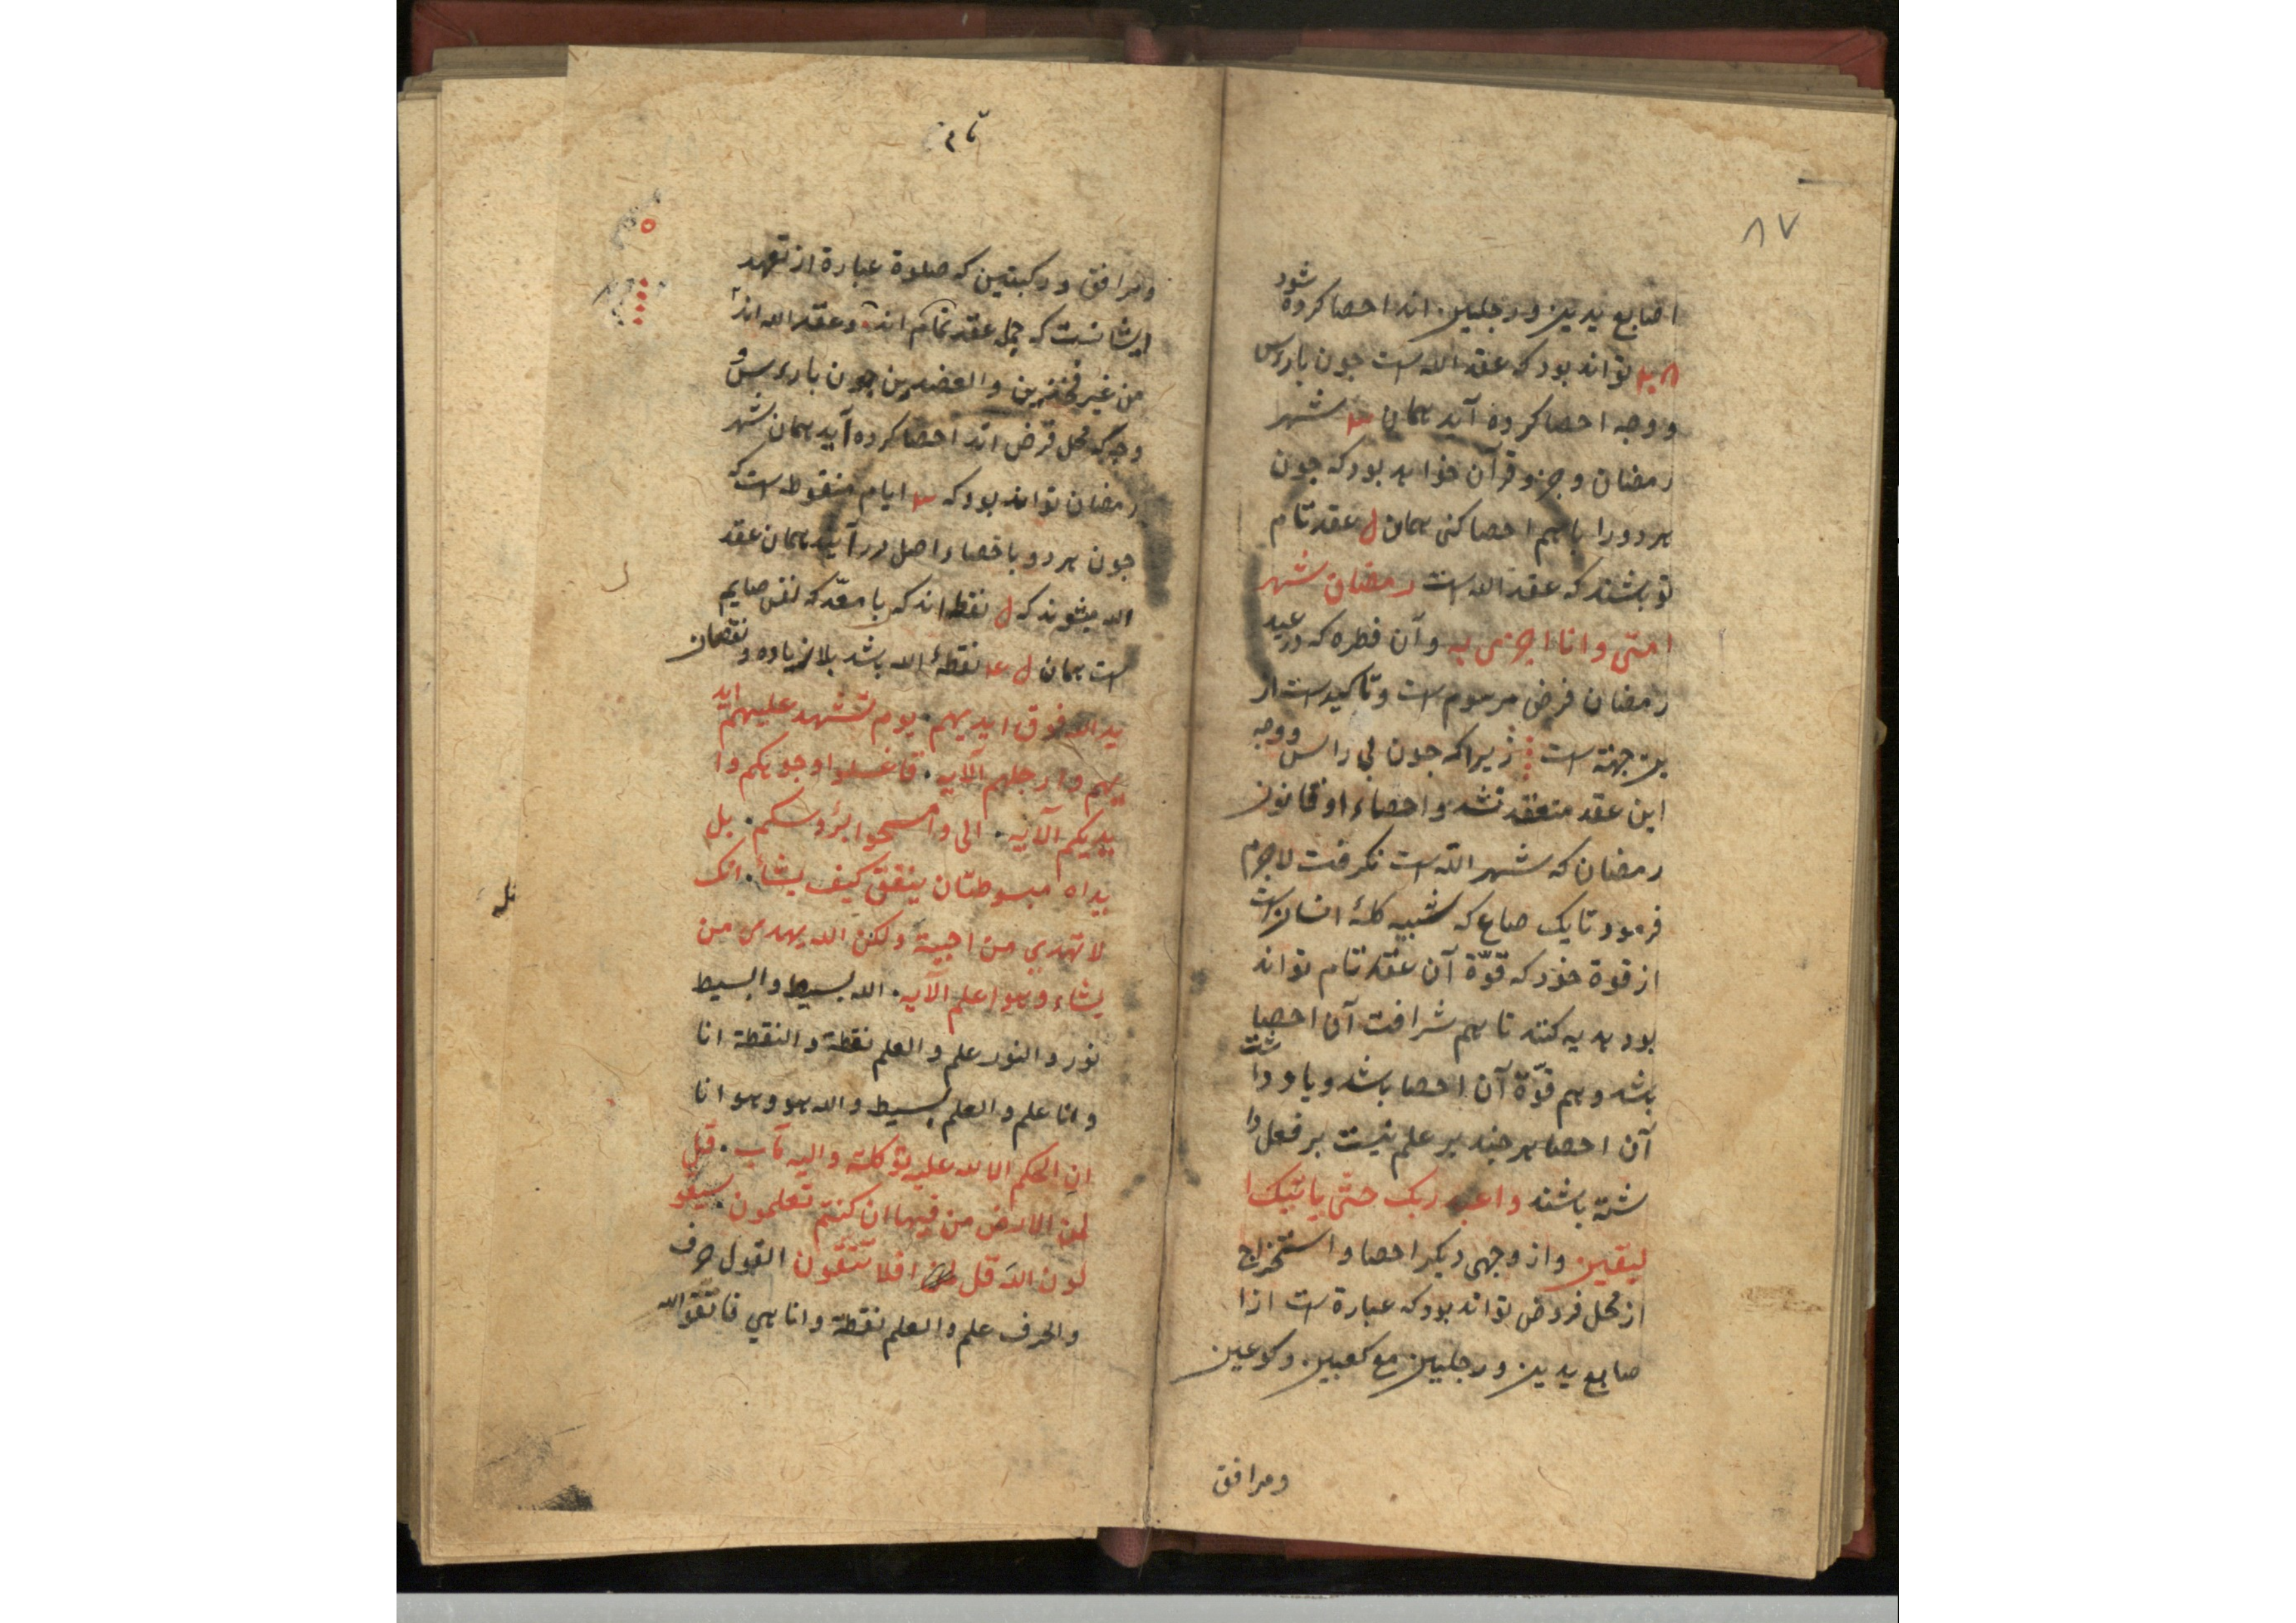 ۸۷
اصابع یدین و رجلین اند احصا کرده شود
تواند بود که عقد الله است جون با رءس
و وجه احصا کرده آید همان شهر
رمضان و جزو قرآن خواهد بود که جون
هر دو را باهم احصا کنی همان ل عقد تام
تو باشند که عقد الله است رمضان شهر
امتی و انا اجزی به و آن فطره که در عید
رمضان فرض مرسوم است و تاکید است از
ین جهته است زیرا که جون بی راس و وجه
این عقد منعقد نشد و احصاء او قانون
رمضان که شهر الله است نکرفت لاجرم
فرمود تا یک صاع که شبیه کلهٔ انسان است
از قوة خود که قوّة آن عقد تام تواند
بود هدیه کنند تا هم شرافت آن احصا
باشد و هم قوّة آن احصا باشد و یاد دا شت
آن احصا هر جند بر علم نیست بر فعل دا
شته باشند واعبد ربک حتّی یاتیک ا
لیقین و از وجهی دیکر احصا و استخراج
از محل فروض تواند بود که عبارة است از ا
صابع یدین و رجلین مع کعبین و کوعین
و مرافق
تام
و مرافق و رکبتین که صلوة عبارة از تعهد
ایشانست که چهل عقد تمام اند و عقد الله اند
من غیر فخذین و العضدین جون با رءس و
وجه که محل فرض اند احصا کرده آید همان شهر
رمضان تواند بود که ایام منقوط است که
جون هر دو با خصاء اصل در آیند همان عقد
الله میشوند که ل نقطه اند که با معدّ که نفس صایم
است همان ل نقطهٔ الله باشد بلا زیاده و نقصان
ید الله فوق ایدیهم. یوم تشهد علیهم اید
یهم و ارجلهم الآیه. فاغسلوا وجوهکم و ا
یدیکم الآیه. الی و امسحوا برؤسکم. بل
یداه مبسوطتان ینفق کیف یشاء. انک
لا تهدی من احببت ولکن الله یهدی من
یشاء و هو اعلم الآیه. الله بسیط و البسیط
نور و النور علم و العلم نقطة و النقطة انا
و انا علم و العلم بسیط و الله هو و هو انا
ان الحکم الا لله علیه توکلت و الیه مآب. قل
لمن الارض من فیها ان کنتم تعلمون. سیقو
لون الله قل افلا تتقون القول حرف
و الحرف علم و العلم نقطة و انا هی فاتقوا الله